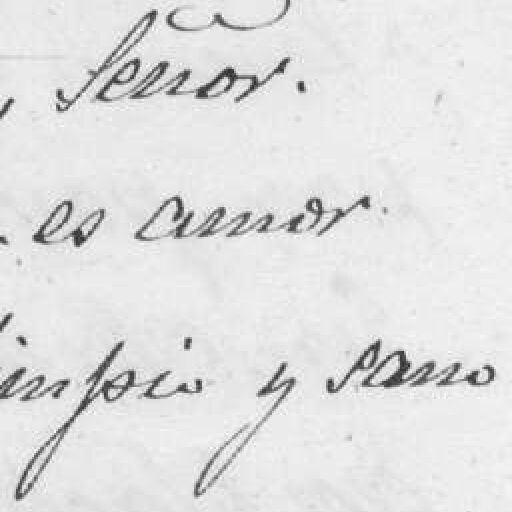 Señor.
es amor.
limpio y sano